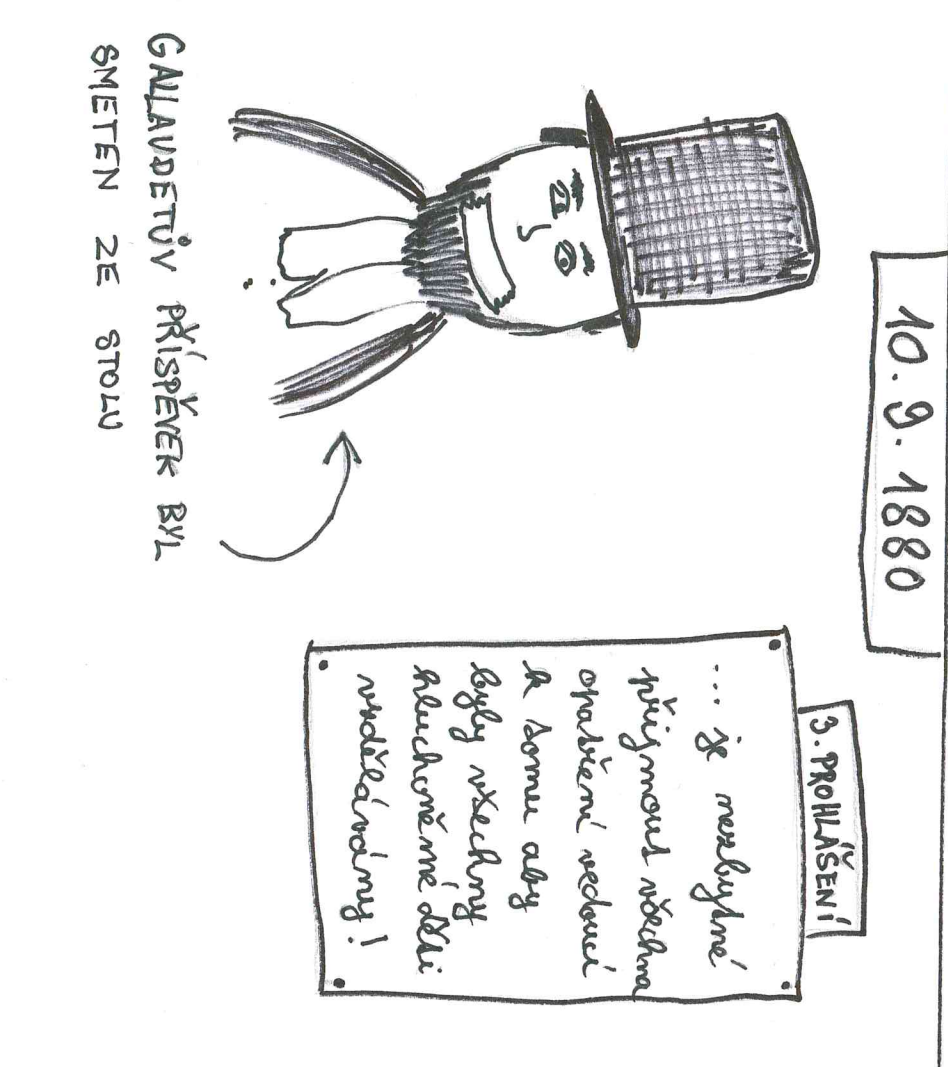 10. 9. 1880
3. PROHLÁŠENÍ
... je nezbytné
přijmout všechna
opatření vedoucí
k tomu aby
byly všechny
hluchoněmé děti
vzdělávány!
GALLAUDETŮV PŘÍSPĚVEK BYL
SMETEN ZE STOLU